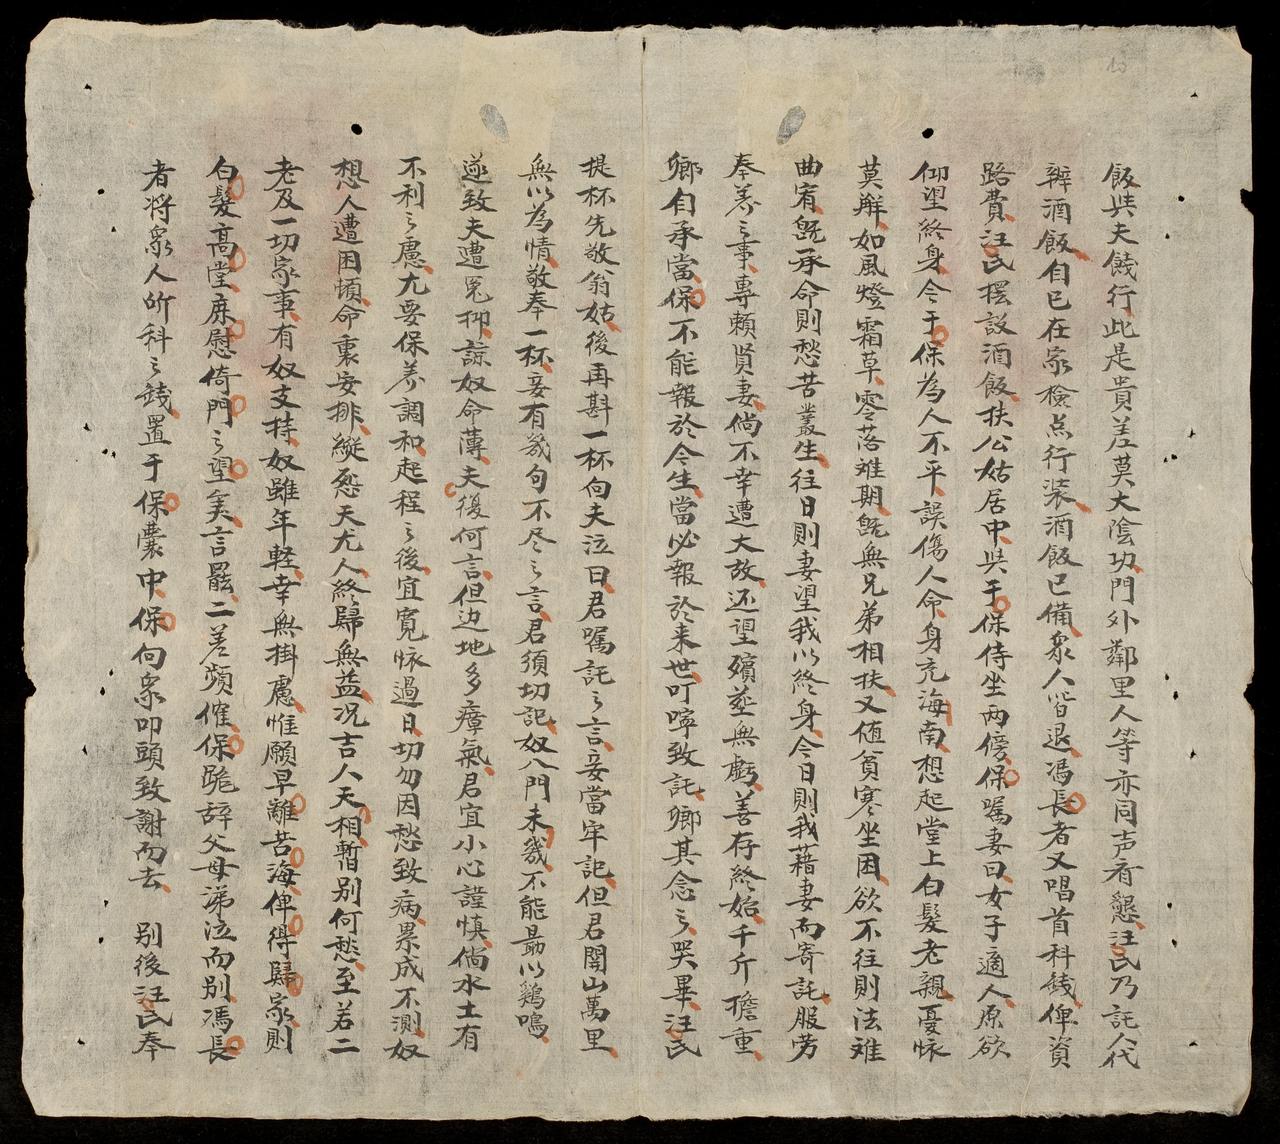 飯與夫餞行此是貴差莫大陰功門外鄰里人等亦同声看懇汪氏乃託人代
辦酒飯自已在家檢点行装酒飯已備衆人皆退馮長者又唱首科錢俾資
路費汪氏擺設酒飯扶公姑居中與于保侍坐两傍保嘱妻曰女子適人原欲
仰望終身今于保為人不平誤傷人命身充海南想起堂上白髮老親憂怀
莫解如風燈霜草零落难期旣無兄弟相扶又値貧寒坐困欲不往則法难
曲宥旣承命則愁苦叢生往日則妻望我以終身今日則我藉妻而寄託服劳
奉养之事專賴賢妻倘不幸遭大故还望殯塟無虧善存終始千斤擔重
鄉自承當保不能報於今生當必報於来世叮嚀致託鄉其念之哭畢汪氏
提杯先敬翁姑後再斟一杯向夫泣曰君嘱託之言妾當牢記但君関山萬里
無以為情敬奉一杯妾有幾句不尽之言君須切記奴入門未幾不能勗以鷄鳴
遂致夫遭冤抑諒奴命薄夫復何言但边地多瘴氣君宜小心謹慎倘水土有
不利之慮尤要保养調和起程之後宜寬怀過日切勿因愁致病累成不測奴
想人遭困頓命裏安排縦怨天尤人終歸無益况吉人天相暫别何愁至若二
老及一切家事有奴支持奴雖年軽幸無掛慮惟願早離苦海俾得歸家則
白髮高堂庶慰倚門之望矣言罷二差頻催保跪辞父母涕泣而别馮長
者将衆人所科之錢置于保囊中保向衆叩頭致謝而去　别後汪氏奉